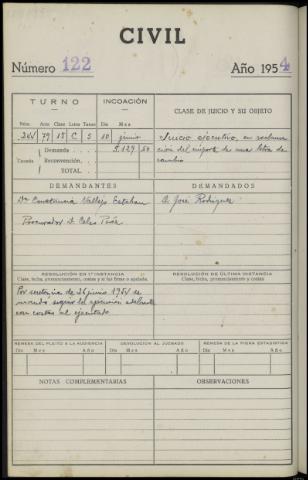 CIVIL
Número 122 Año 1954
TURNO INCOACIÓN CLASE DE JUICIO Y SU OBJETO
Núm. Año Clase Letra Tanto Día Mes
264 79 1ª C 5 10 junio
Juicio ejecutivo, en reclama
Cuantía Demanda 5.129 50
ción del importe de una letra de
Reconvención
cambio
TOTAL
DEMANDANTES DEMANDADOS
Dª Constancia Vallejo Esteban
D. José Rodríguez
Procurador D. Celso
RESOLUCIÓN EN 1ª INSTANCIA
Clase, fecha, pronunciamiento, costas y si fué firme o apelada.
RESOLUCIÓN DE ÚLTIMA INSTANCIA
Clase, fecha, pronunciamiento y costas
Por sentencia de 26 junio 1954 se
mandó seguir la ejecución adelante
con costas al ejecutado
REMESA DEL PLEITO A LA AUDIENCIA DEVOLUCIÓN AL JUZGADO REMESA DE LA PIEZA ESTADÍSTICA
Día Mes Año Día Mes Año Día Mes Año
NOTAS COMPLEMENTARIAS OBSERVACIONES